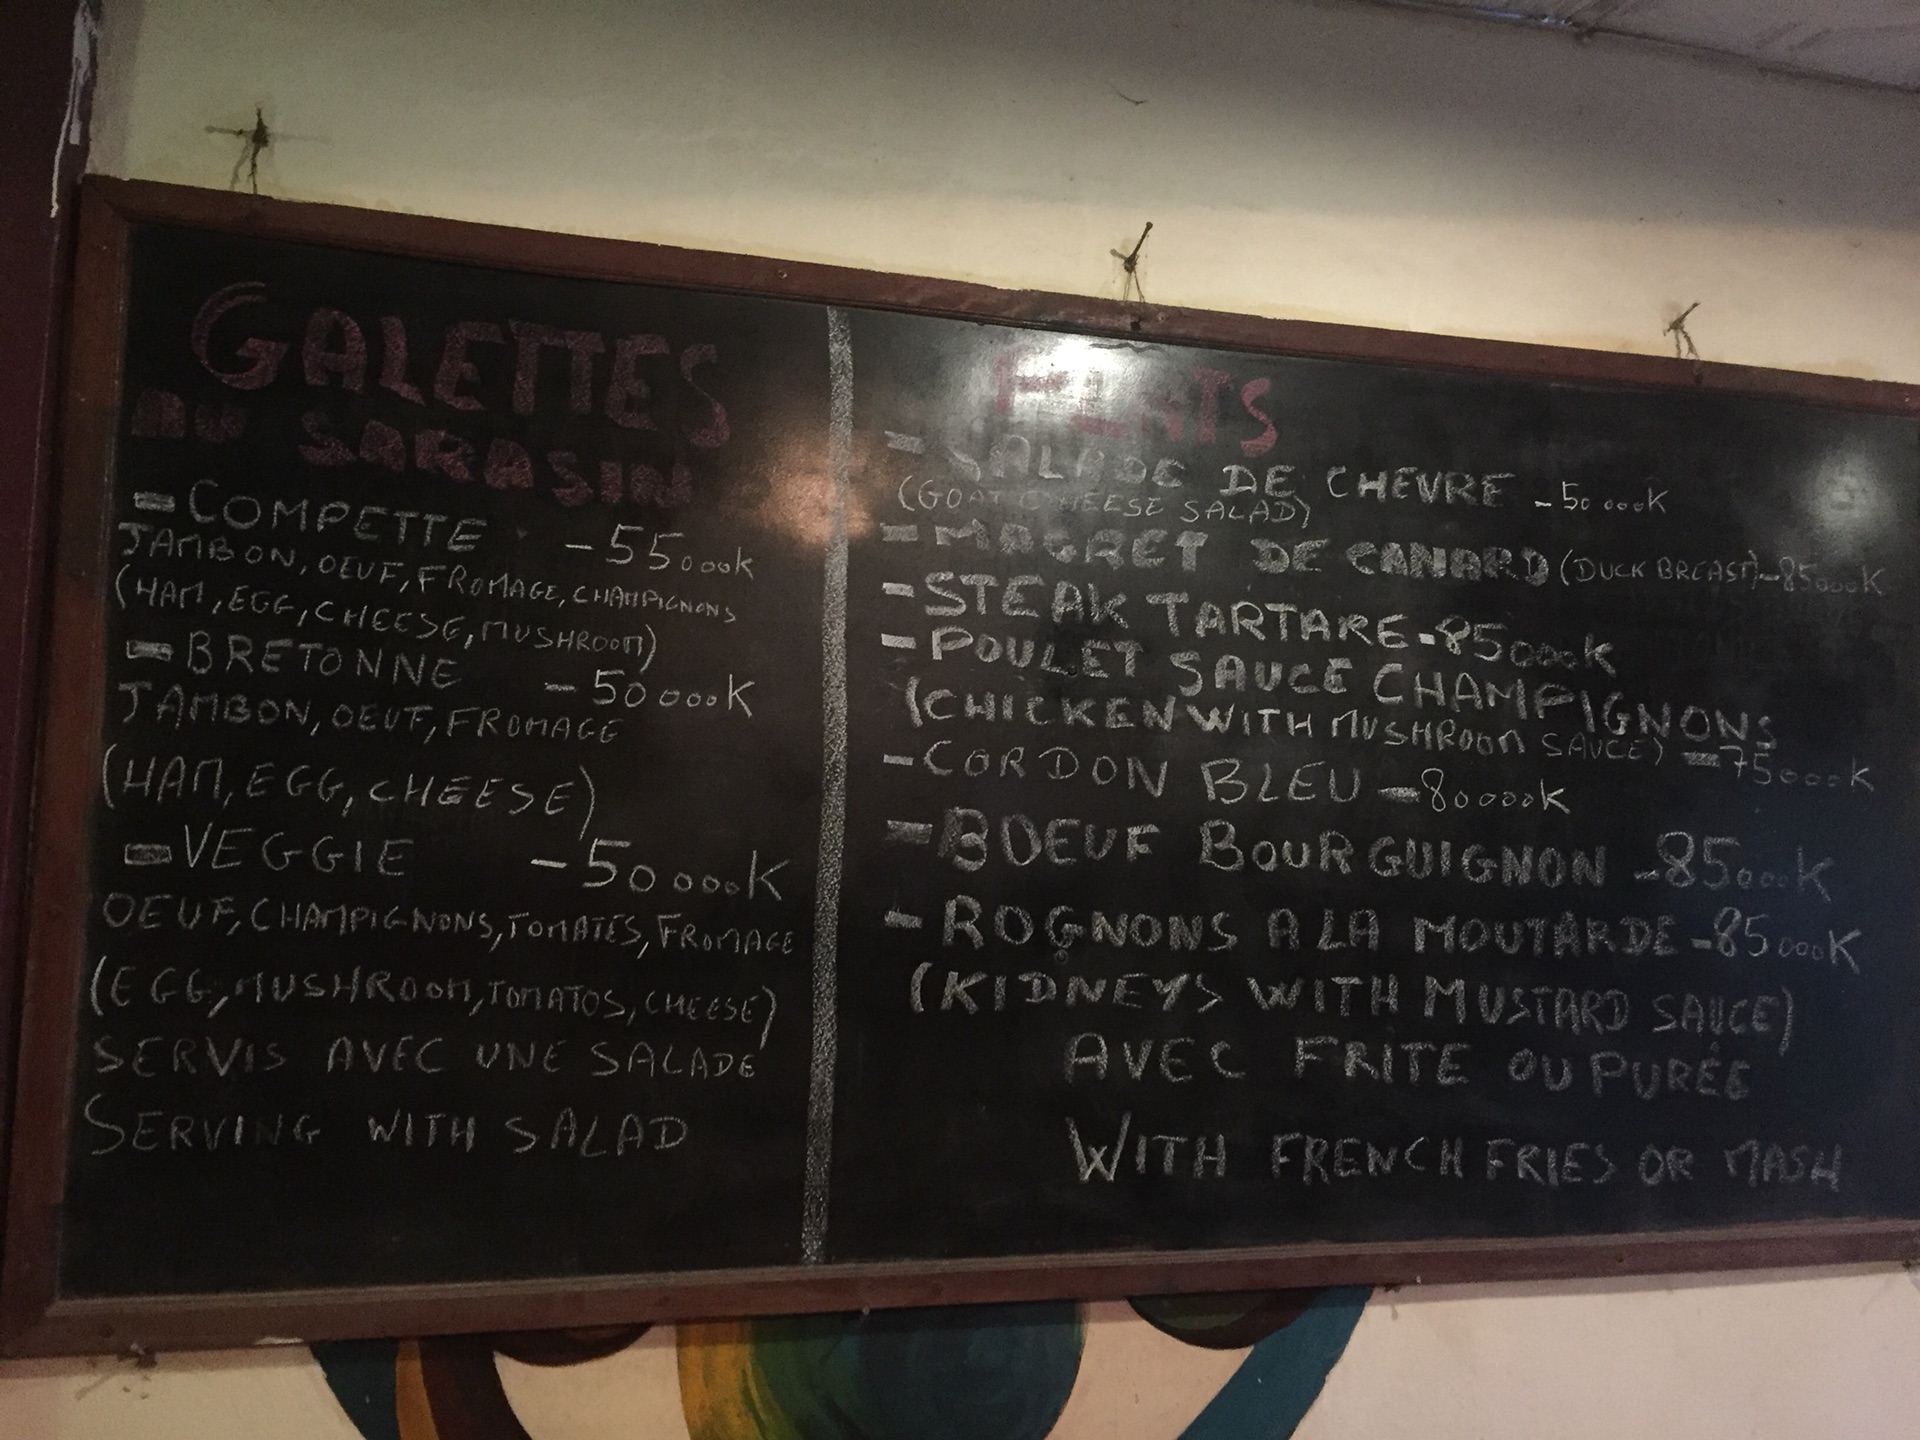 GALETTES
AU SARASIN
- COMPETTE - 55000K
JAMBON, OEUF, FROMAGE, CHAMPIGNONS
(HAM, EGG, CHEESE, MUSHROOM)
- BRETONNE - 50000K
JAMBON, OEUF, FROMAGE
(HAM, EGG, CHEESE)
- VEGGIE - 50000K
OEUF, CHAMPIGNONS, TOMATES, FROMAGE
(EGG, MUSHROOM, TOMATOS, CHEESE)
SERVIS AVEC UNE SALADE
SERVING WITH SALAD
PLATS
- SALADE DE CHEVRE - 50000K
(GOAT CHEESE SALAD)
- MAGRET DE CANARD (DUCK BREAST) - 85000K
- STEAK TARTARE - 85000K
- POULET SAUCE CHAMPIGNONS
(CHICKEN WITH MUSHROOM SAUCE) - 75000K
- CORDON BLEU - 80000K
- BOEUF BOURGUIGNON - 85000K
- ROGNONS A LA MOUTARDE - 85000K
(KIDNEYS WITH MUSTARD SAUCE)
AVEC FRITE OU PURÉE
WITH FRENCH FRIES OR MASH